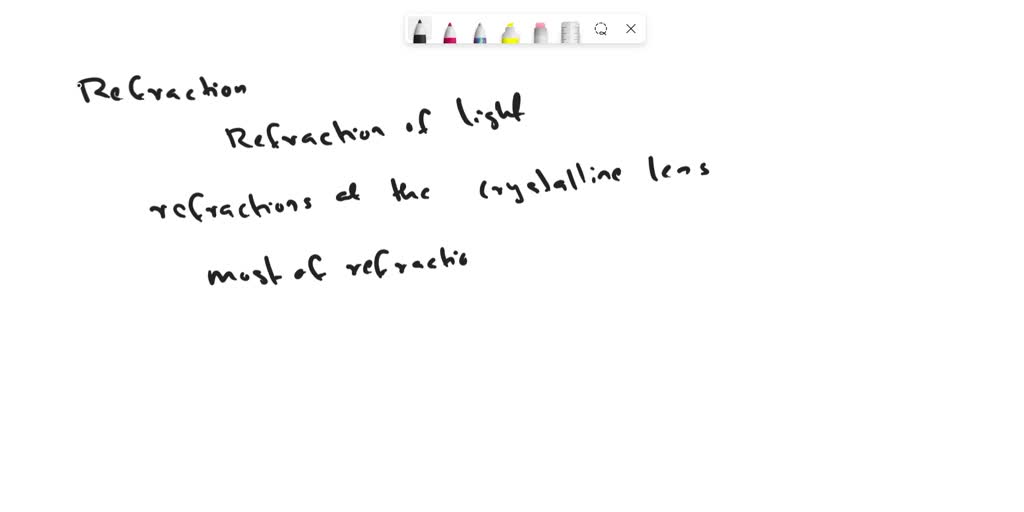 Refraction
Refraction of light
refractions at the crystalline lens
most of refractio